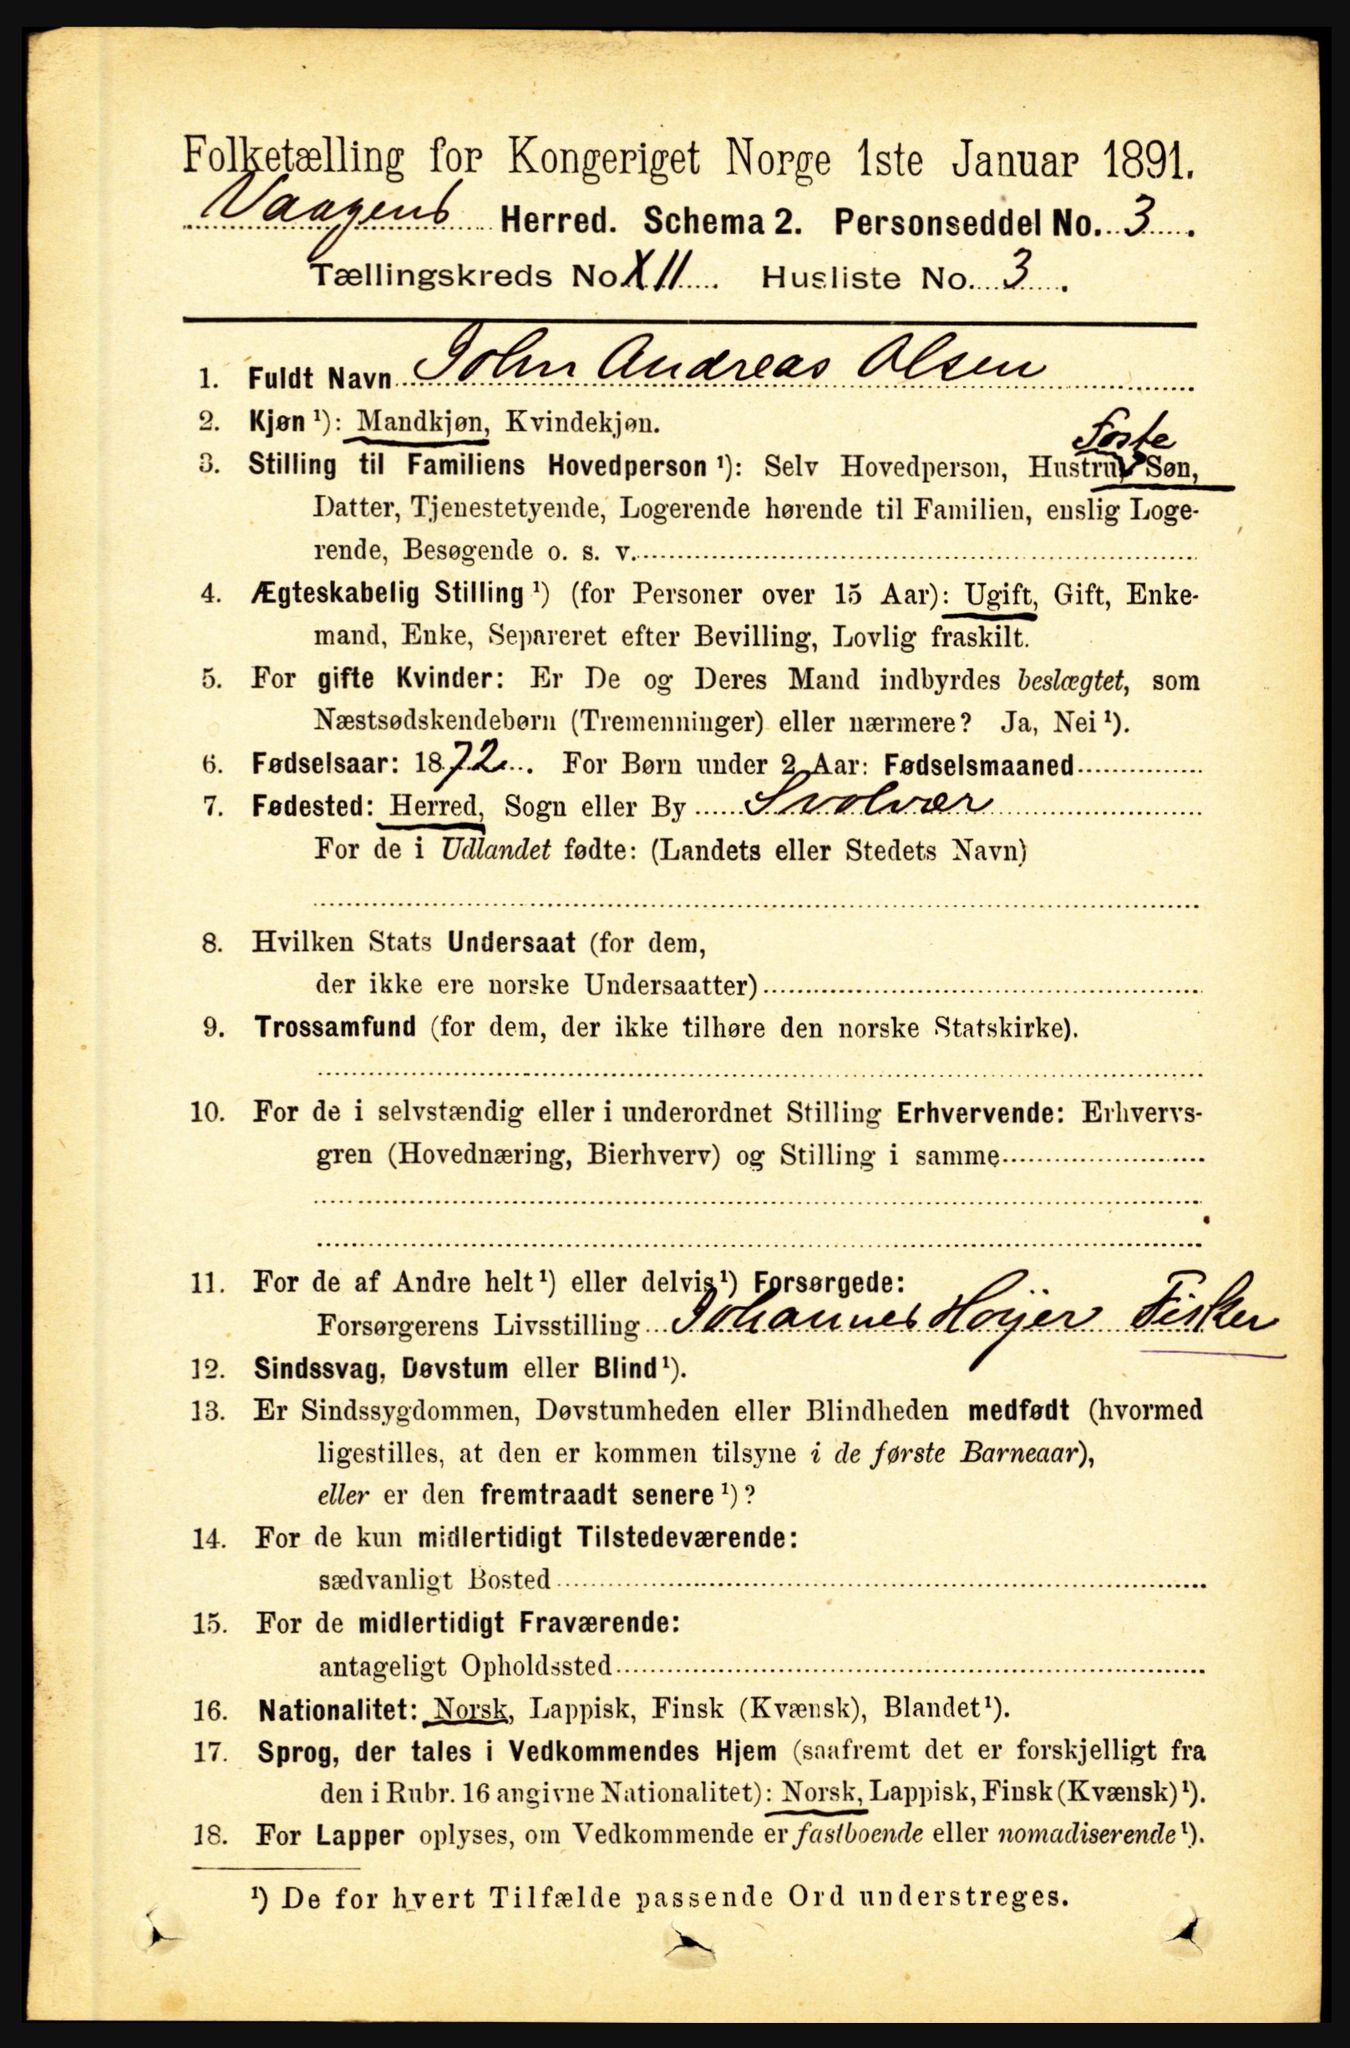 Folketælling for Kongeriget Norge 1ste Januar 1891.
Vaagens Herred. Schema 2. Personseddel No. 3.
Tællingskreds No XII. Husliste No. 3.
1. Fuldt Navn John Andreas Olsen
2. Kjøn ¹): Mandkjøn, Kvindekjøn.
Foste
3. Stilling til Familiens Hovedperson ¹): Selv Hovedperson, Hustru, Søn,
Datter, Tjenestetyende, Logerende hørende til Familien, enslig Loge-
rende, Besøgende o. s. v.
4. Ægteskabelig Stilling ¹) (for Personer over 15 Aar): Ugift, Gift, Enke-
mand, Enke, Separeret efter Bevilling, Lovlig fraskilt.
5. For gifte Kvinder: Er De og Deres Mand indbyrdes beslægtet, som
Næstsødskendebørn (Tremenninger) eller nærmere? Ja, Nei ¹).
6. Fødselsaar: 1872. For Børn under 2 Aar: Fødselsmaaned
7. Fødested: Herred, Sogn eller By Svolvær
For de i Udlandet fødte: (Landets eller Stedets Navn)
8. Hvilken Stats Undersaat (for dem,
der ikke ere norske Undersaatter)
9. Trossamfund (for dem, der ikke tilhøre den norske Statskirke).
10. For de i selvstændig eller i underordnet Stilling Erhvervende: Erhvervs-
gren (Hovednæring, Bierhverv) og Stilling i samme
11. For de af Andre helt ¹) eller delvis ¹) Forsørgede:
Forsørgerens Livsstilling Johannes Høyer Fisker
12. Sindssvag, Døvstum eller Blind ¹).
13. Er Sindssygdommen, Døvstumheden eller Blindheden medfødt (hvormed
ligestilles, at den er kommen tilsyne i de første Barneaar),
eller er den fremtraadt senere ¹)?
14. For de kun midlertidigt Tilstedeværende:
sædvanligt Bosted
15. For de midlertidigt Fraværende:
antageligt Opholdssted
16. Nationalitet: Norsk, Lappisk, Finsk (Kvænsk), Blandet ¹).
17. Sprog, der tales i Vedkommendes Hjem (saafremt det er forskjelligt fra
den i Rubr. 16 angivne Nationalitet): Norsk, Lappisk, Finsk (Kvænsk) ¹).
18. For Lapper oplyses, om Vedkommende er fastboende eller nomadiserende ¹).
¹) De for hvert Tilfælde passende Ord understreges.